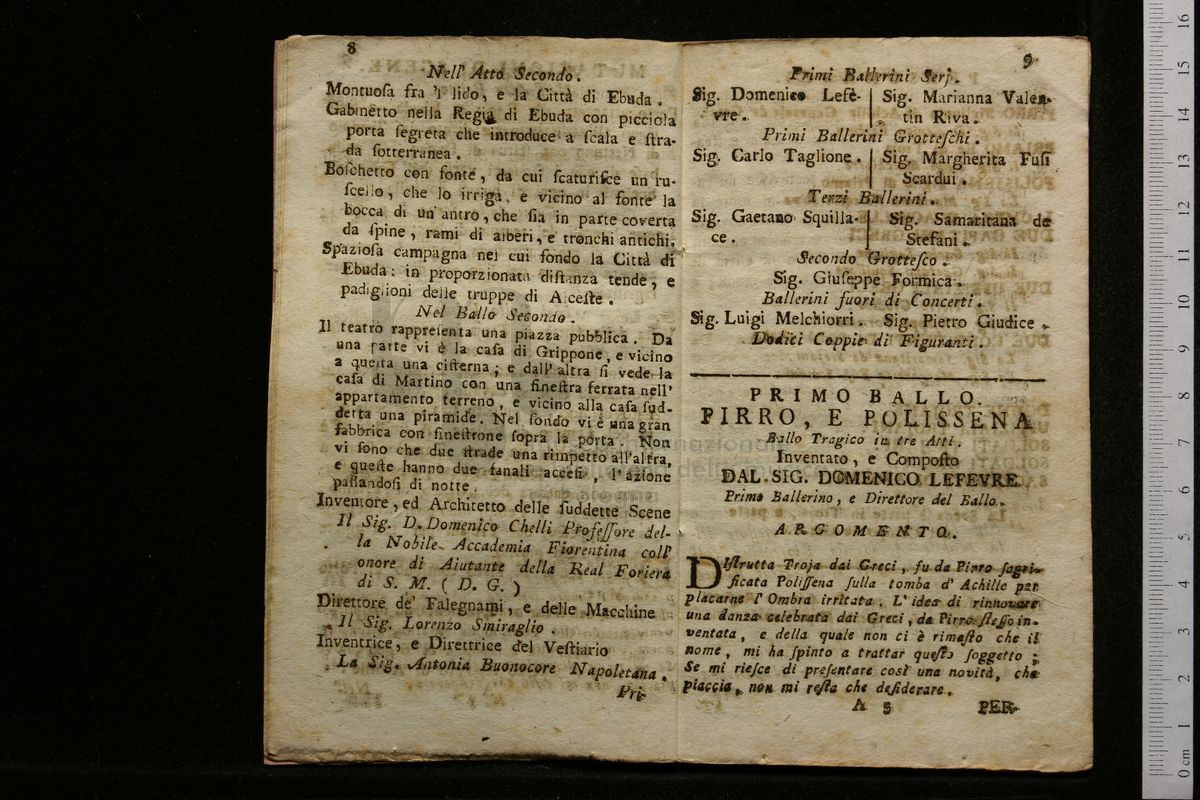 8
Nell' Atto Secondo.
Montuosa fra 'l lido, e la Città di Ebuda.
Gabinetto nella Regia di Ebuda con picciola
porta segreta che introduce a scala e stra-
da sotterranea.
Boschetto con fonte, da cui scaturisce un ru-
scello, che lo irriga, e vicino al fonte la
bocca di un antro, che sia in parte coverta
da spine, rami di alberi, e tronchi antichi.
Spaziosa campagna nel cui fondo la Città di
Ebuda: in proporzionata distanza tende, e
padiglioni delle truppe di Alceste.
Nel Ballo Secondo.
Il teatro rappresenta una piazza pubblica. Da
una parte vi è la casa di Grippone, e vicino
a questa una cisterna; e dall' altra si vede la
casa di Martino con una finestra ferrata nell'
appartamento terreno, e vicino alla casa sud-
detta una piramide. Nel fondo vi è una gran
fabbrica con finestrone sopra la porta. Non
vi sono che due strade una rimpetto all'altra,
e queste hanno due fanali accesi, l'azione
passandosi di notte.
Inventore, ed Architetto delle suddette Scene
Il Sig. D. Domenico Chelli Professore del-
la Nobile Accademia Fiorentina coll'
onore di Aiutante della Real Foriera
di S. M. ( D. G. )
Direttore de' Falegnami, e delle Macchine
Il Sig. Lorenzo Smiraglio.
Inventrice, e Direttrice del Vestiario
La Sig. Antonia Buonocore Napoletana.
Pri-
9
Primi Ballerini Serj.
Sig. Domenico Lefè-
vre.
Sig. Marianna Valen-
tin Riva.
Primi Ballerini Grotteschi.
Sig. Carlo Taglione.
Sig. Margherita Fusi
Scardui.
Terzi Ballerini.
Sig. Gaetano Squilla-
ce.
Sig. Samaritana de
Stefani.
Secondo Grottesco.
Sig. Giuseppe Formica.
Ballerini fuori di Concerti.
Sig. Luigi Melchiorri. Sig. Pietro Giudice.
Dodici Coppie di Figuranti.
PRIMO BALLO.
PIRRO, E POLISSENA
Ballo Tragico in tre Atti.
Inventato, e Composto
DAL SIG. DOMENICO LEFEVRE
Primo Ballerino, e Direttore del Ballo.
ARGOMENTO.
Distrutta Troja dai Greci, fu da Pirro sagri-
ficata Polissena sulla tomba d' Achille per
placarne l' Ombra irritata. L' idea di rinnovare
una danza celebrata dai Greci, da Pirro stesso in-
ventata, e della quale non ci è rimasto che il
nome, mi ha spinto a trattar questo soggetto;
Se mi riesce di presentare così una novità, che
piaccia, non mi resta che desiderare.
A 5
PER-
0 cm 1 2 3 4 5 6 7 8 9 10 11 12 13 14 15 16